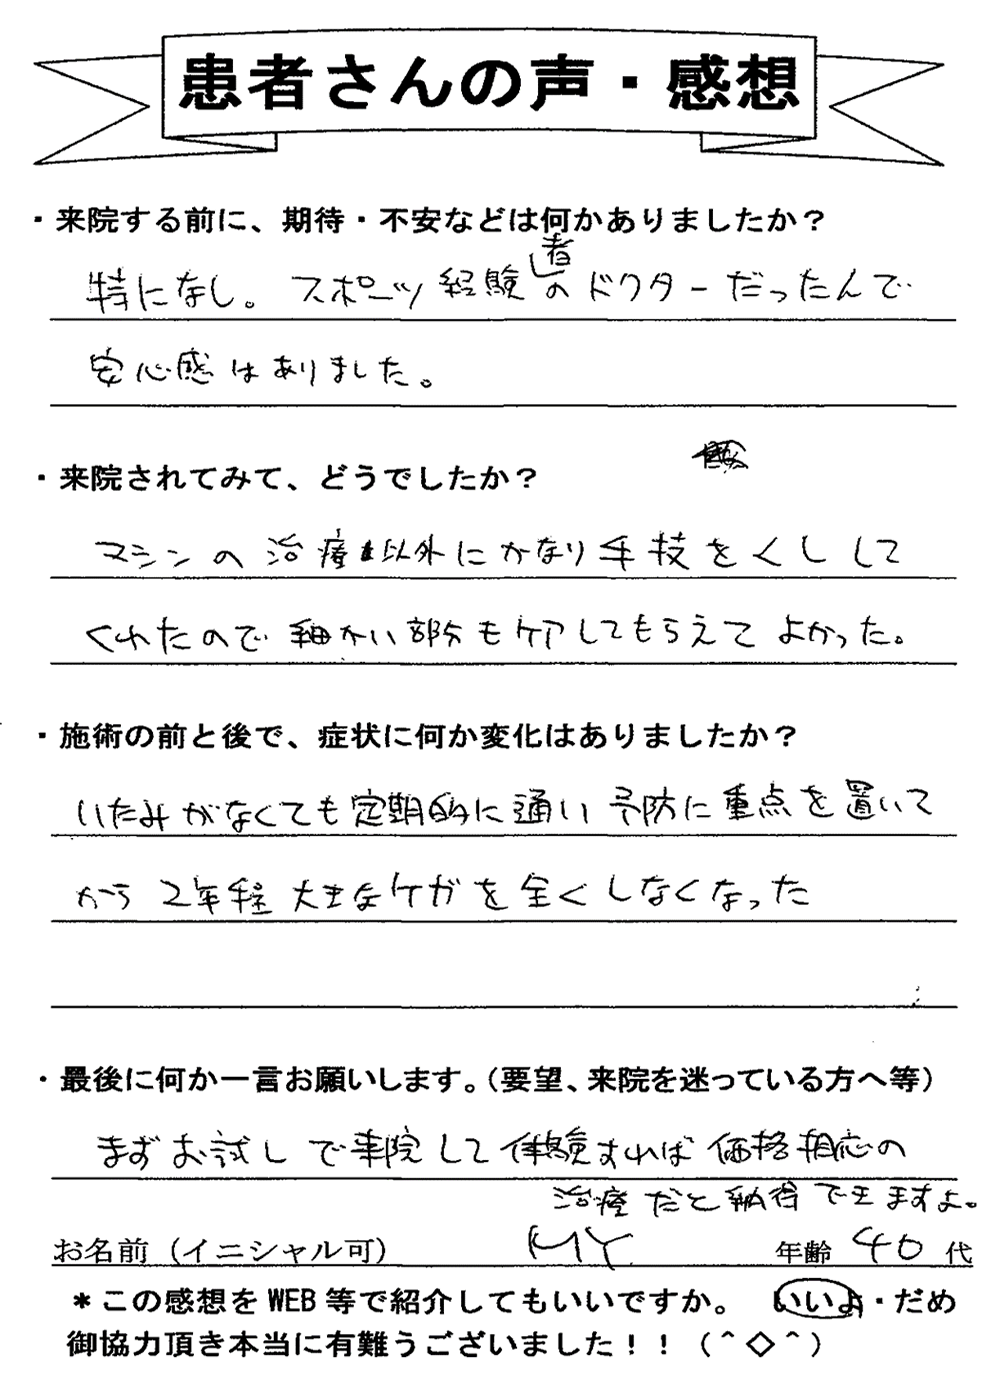 患者さんの声・感想
・来院する前に、期待・不安などは何かありましたか？
特になし。スポーツ経験者のドクターだったんで
安心感はありました。
・来院されてみて、どうでしたか？
マシンの治療以外にかなり手技をくしして
くれたので細かい部分もケアしてもらえてよかった。
・施術の前と後で、症状に何か変化はありましたか？
いたみがなくても定期的に通い予防に重点を置いて
から2年程大きなケガを全くしなくなった
・最後に何か一言お願いします。（要望、来院を迷っている方へ等）
まずお試しで来院して体験すれば価格相応の
治療だと納得できますよ。
お名前（イニシャル可） MY 年齢 40 代
＊この感想をWEB等で紹介してもいいですか。 いいよ・だめ
御協力頂き本当に有難うございました！！（＾◇＾）